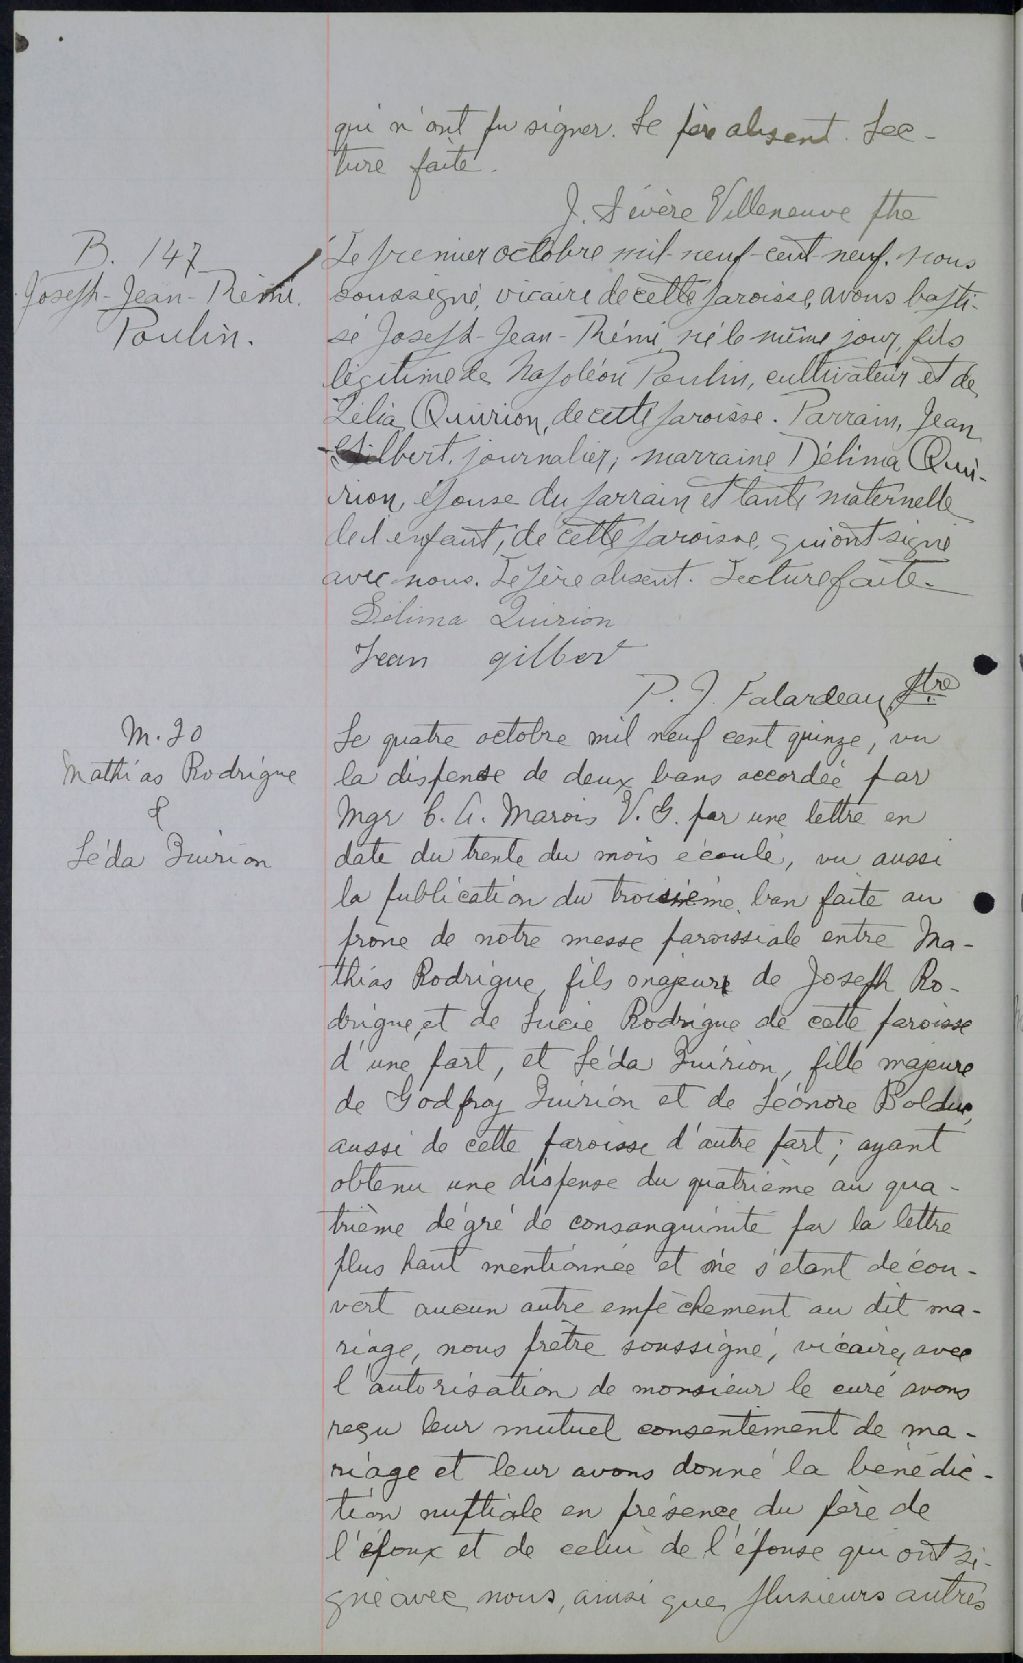 qui n'ont pu signer. Le père absent. Lec-
ture faite.
J. Sévère Villeneuve ptre
B. 147
Joseph-Jean-Rémi.
Poulin.
Le premier octobre mil-neuf-cent-neuf. nous
soussigné, vicaire de cette paroisse, avons bapti-
sé Joseph-Jean-Rémi, né le même jour, fils
légitime de Napoléon Poulin, cultivateur et de
Lélia Quirion, de cette paroisse. Parrain, Jean
Gilbert, journalier, marraine Délima Qui-
rion, épouse du parrain et tante maternelle
de l'enfant, de cette paroisse, qui ont signé
avec nous. Le père absent. Lecture faite.
Délima Quirion
Jean gilbert
P. J. Falardeau, ptre
M. 20
Mathias Rodrigue
&
Léda Quirion
Le quatre octobre mil neuf cent quinze, vu
la dispense de deux bans accordée par
Mgr C. A. Marois V. G. par une lettre en
date du trente du mois écoulé, vu aussi
la publication du troisième ban faite au
prône de notre messe paroissiale entre Ma-
thias Rodrigue, fils majeur de Joseph Ro-
drigue, et de Lucie Rodrigue de cette paroisse
d'une part, et Léda Quirion, fille majeure
de Godfroy Quirion et de Léonore Bolduc,
aussi de cette paroisse d'autre part; ayant
obtenu une dispense du quatrième au qua-
trième dégré de consanguinité par la lettre
plus haut mentionnée et ne s'étant décou-
vert aucun autre empêchement au dit ma-
riage, nous prêtre soussigné, vicaire, avec
l'autorisation de monsieur le curé avons
reçu leur mutuel consentement de ma-
riage et leur avons donné la bénédic-
tion nuptiale en présence du père de
l'époux et de celui de l'épouse qui ont si-
gné avec nous, ainsi que plusieurs autres